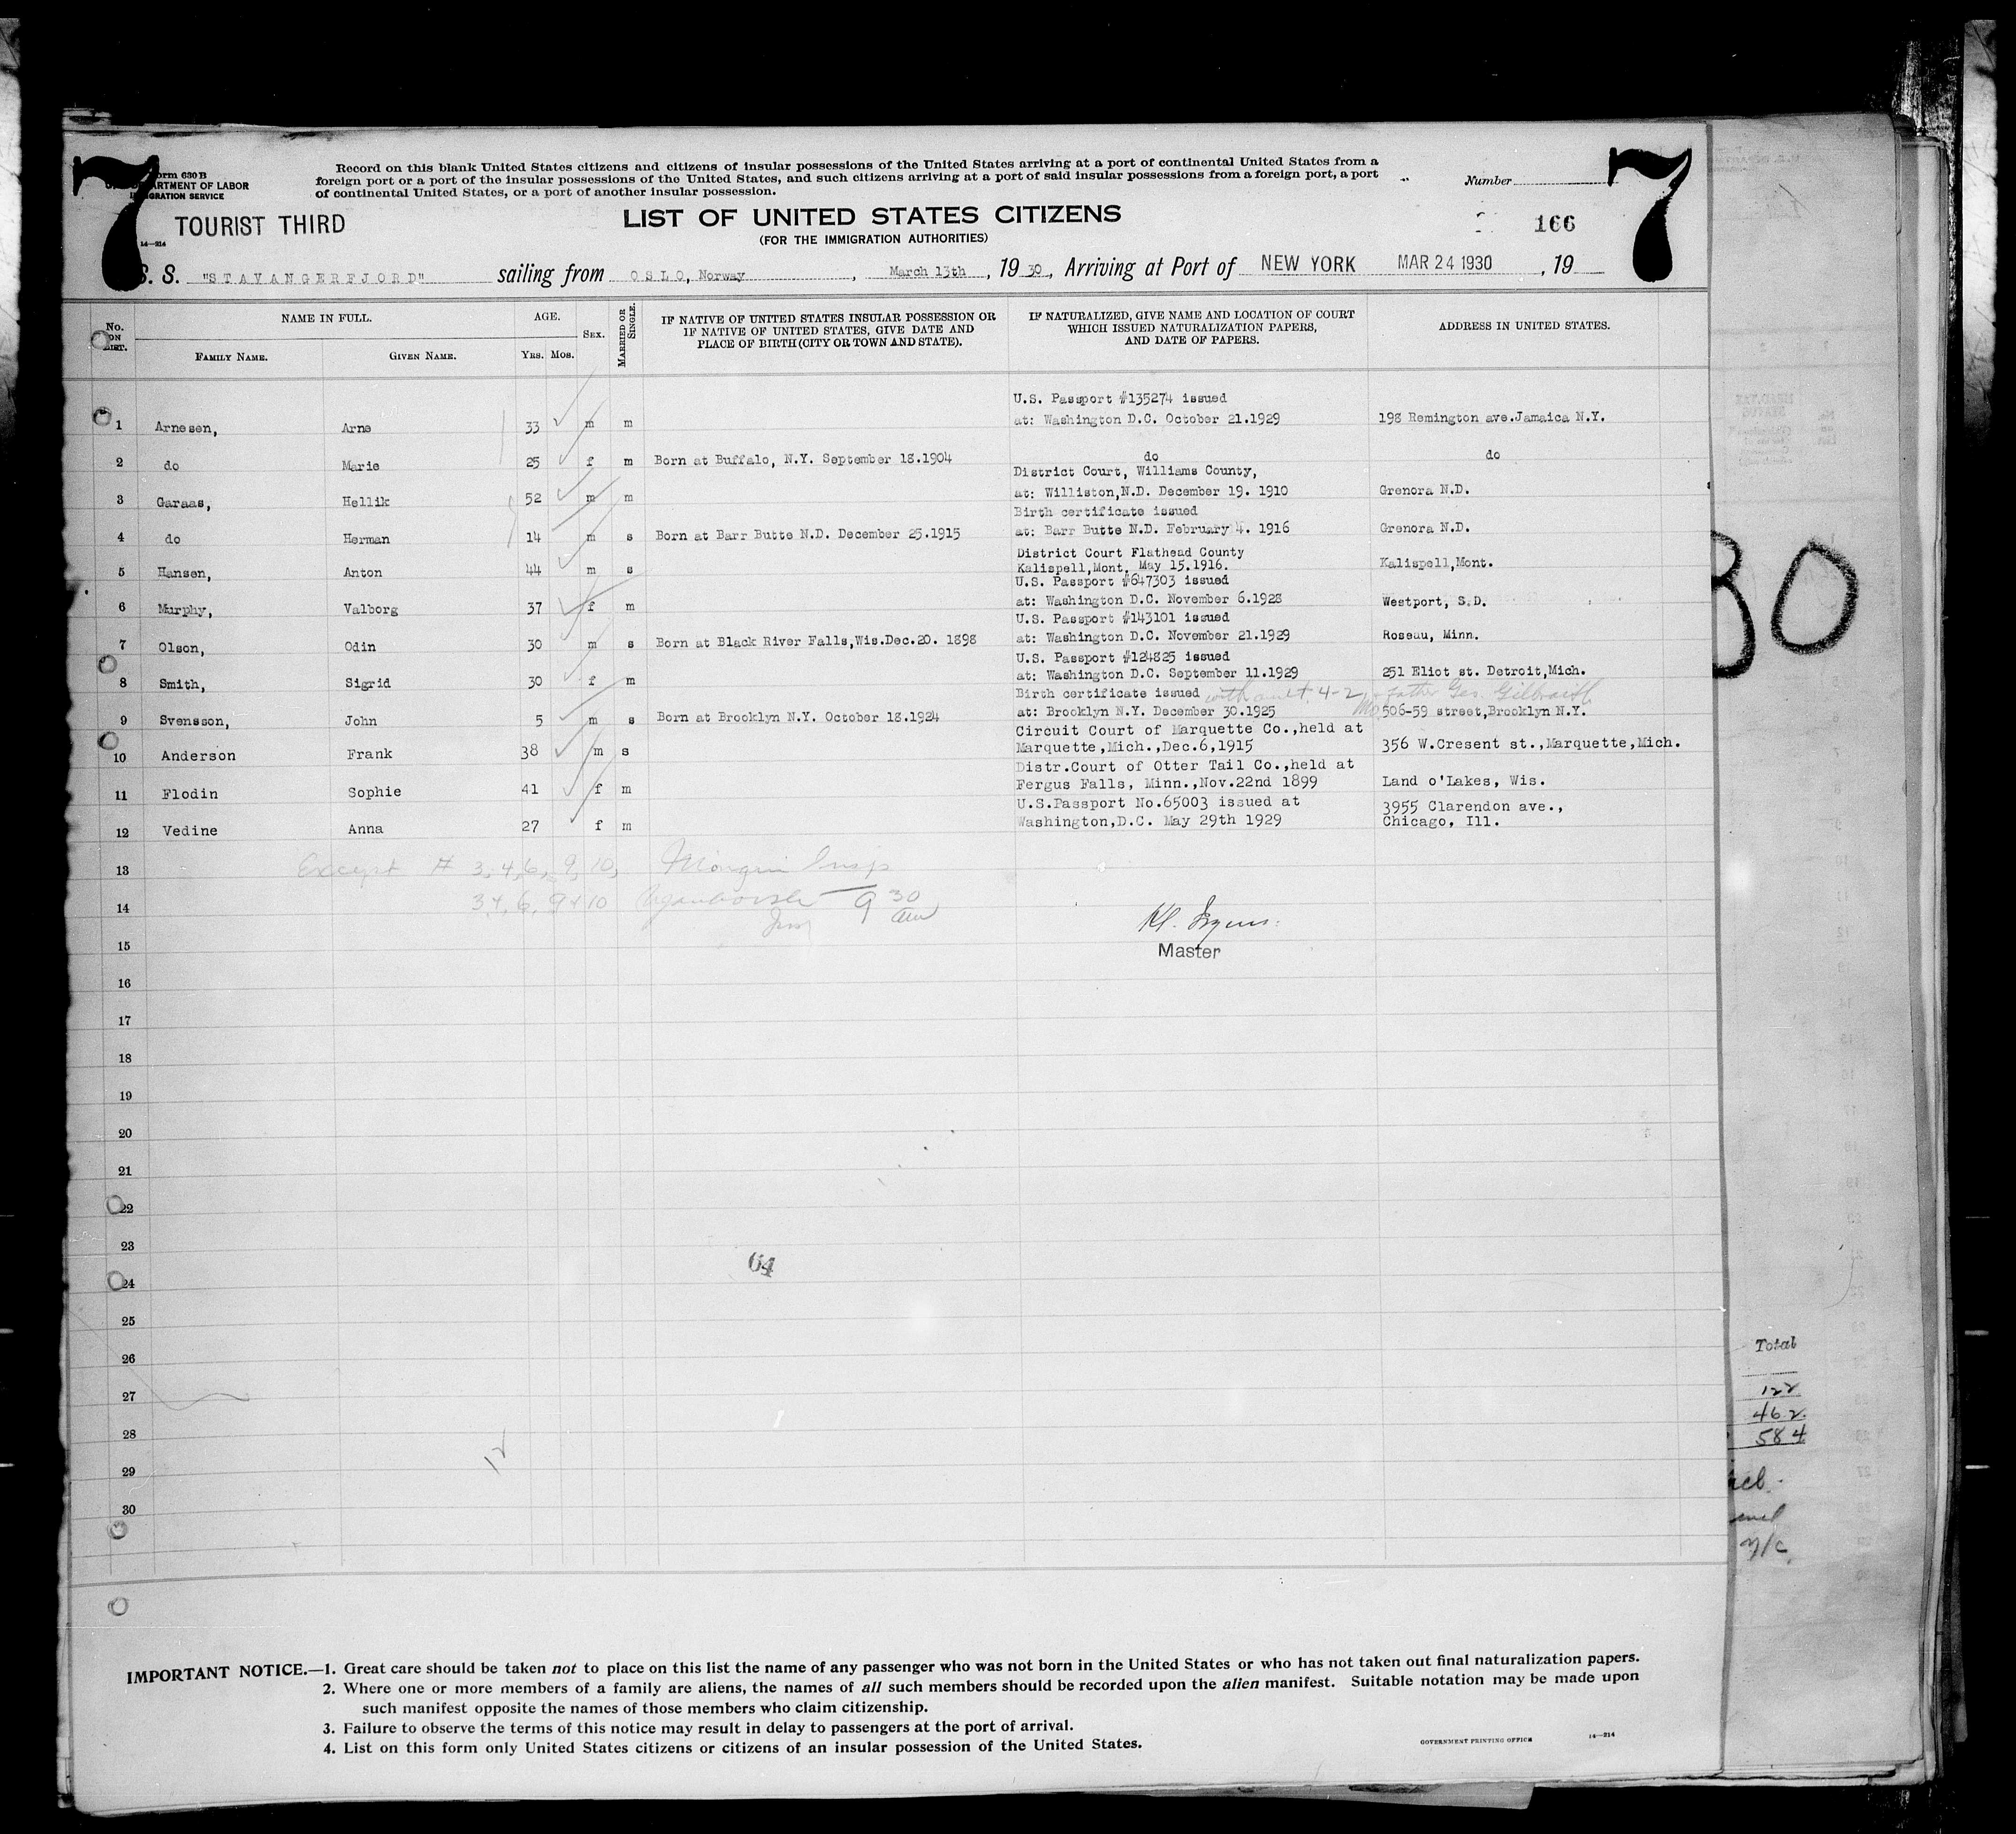 7
7
Form 630 B
U.S. DEPARTMENT OF LABOR
IMMIGRATION SERVICE
Record on this blank United States citizens and citizens of insular possessions of the United States arriving at a port of continental United States from a
foreign port or a port of the insular possessions of the United States, and such citizens arriving at a port of said insular possessions from a foreign port, a port
of continental United States, or a port of another insular possession.
Number
TOURIST THIRD
14—214
LIST OF UNITED STATES CITIZENS
(FOR THE IMMIGRATION AUTHORITIES)
166
S. S. "STAVANGERFJORD" sailing from OSLO, Norway, March 13th, 19 30, Arriving at Port of NEW YORK MAR 24 1930, 19
No. ON LIST.
NAME IN FULL.
AGE.
SEX.
MARRIED OR SINGLE.
IF NATIVE OF UNITED STATES INSULAR POSSESSION OR
IF NATIVE OF UNITED STATES, GIVE DATE AND
PLACE OF BIRTH (CITY OR TOWN AND STATE).
IF NATURALIZED, GIVE NAME AND LOCATION OF COURT
WHICH ISSUED NATURALIZATION PAPERS,
AND DATE OF PAPERS.
ADDRESS IN UNITED STATES.
FAMILY NAME. GIVEN NAME. YRS. MOS.
U.S. Passport #135274 issued
1 Arnesen, Arne 33 m m at: Washington D.C. October 21.1929 198 Remington ave.Jamaica N.Y.
2 do Marie 25 f m Born at Buffalo, N.Y. September 18.1904 do do
District Court, Williams County,
3 Garaas, Hellik 52 m m at: Williston,N.D. December 19. 1910 Grenora N.D.
Birth certificate issued
4 do Herman 14 m s Born at Barr Butte N.D. December 25.1915 at: Barr Butte N.D. February 4. 1916 Grenora N.D.
District Court Flathead County
5 Hansen, Anton 44 m s Kalispell,Mont. May 15.1916. Kalispell,Mont.
U.S. Passport #647303 issued
6 Murphy, Valborg 37 f m at: Washington D.C. November 6.1928 Westport, S.D.
U.S. Passport #143101 issued
7 Olson, Odin 30 m s Born at Black River Falls,Wis.Dec.20. 1898 at: Washington D.C. November 21.1929 Roseau, Minn.
U.S. Passport #124825 issued
8 Smith, Sigrid 30 f m at: Washington D.C. September 11.1929 251 Eliot st. Detroit,Mich.
Birth certificate issued with aunt 4-2 father Geo.
9 Svensson, John 5 m s Born at Brooklyn N.Y. October 18.1924 at: Brooklyn N.Y. December 30.1925 506-59 street,Brooklyn N.Y.
Circuit Court of Marquette Co.,held at
10 Anderson Frank 38 m s Marquette,Mich.,Dec.6,1915 356 W.Cresent st.,Marquette,Mich.
Distr.Court of Otter Tail Co.,held at
11 Flodin Sophie 41 f m Fergus Falls, Minn.,Nov.22nd 1899 Land o'Lakes, Wis.
U.S.Passport No.65003 issued at 3955 Clarendon ave.,
12 Vedine Anna 27 f m Washington,D.C. May 29th 1929 Chicago, Ill.
13 Except # 3, 4, 6, 9, 10, Insp
14 3, 4, 6, 9 + 10 9 30 am
15 Master
16
17
18
19
20
21
22
23
64
24
25
26
27
28
12
29
30
30
Total
122
462
584
IMPORTANT NOTICE.—1. Great care should be taken not to place on this list the name of any passenger who was not born in the United States or who has not taken out final naturalization papers.
2. Where one or more members of a family are aliens, the names of all such members should be recorded upon the alien manifest. Suitable notation may be made upon
such manifest opposite the names of those members who claim citizenship.
3. Failure to observe the terms of this notice may result in delay to passengers at the port of arrival.
4. List on this form only United States citizens or citizens of an insular possession of the United States.
GOVERNMENT PRINTING OFFICE 14—214